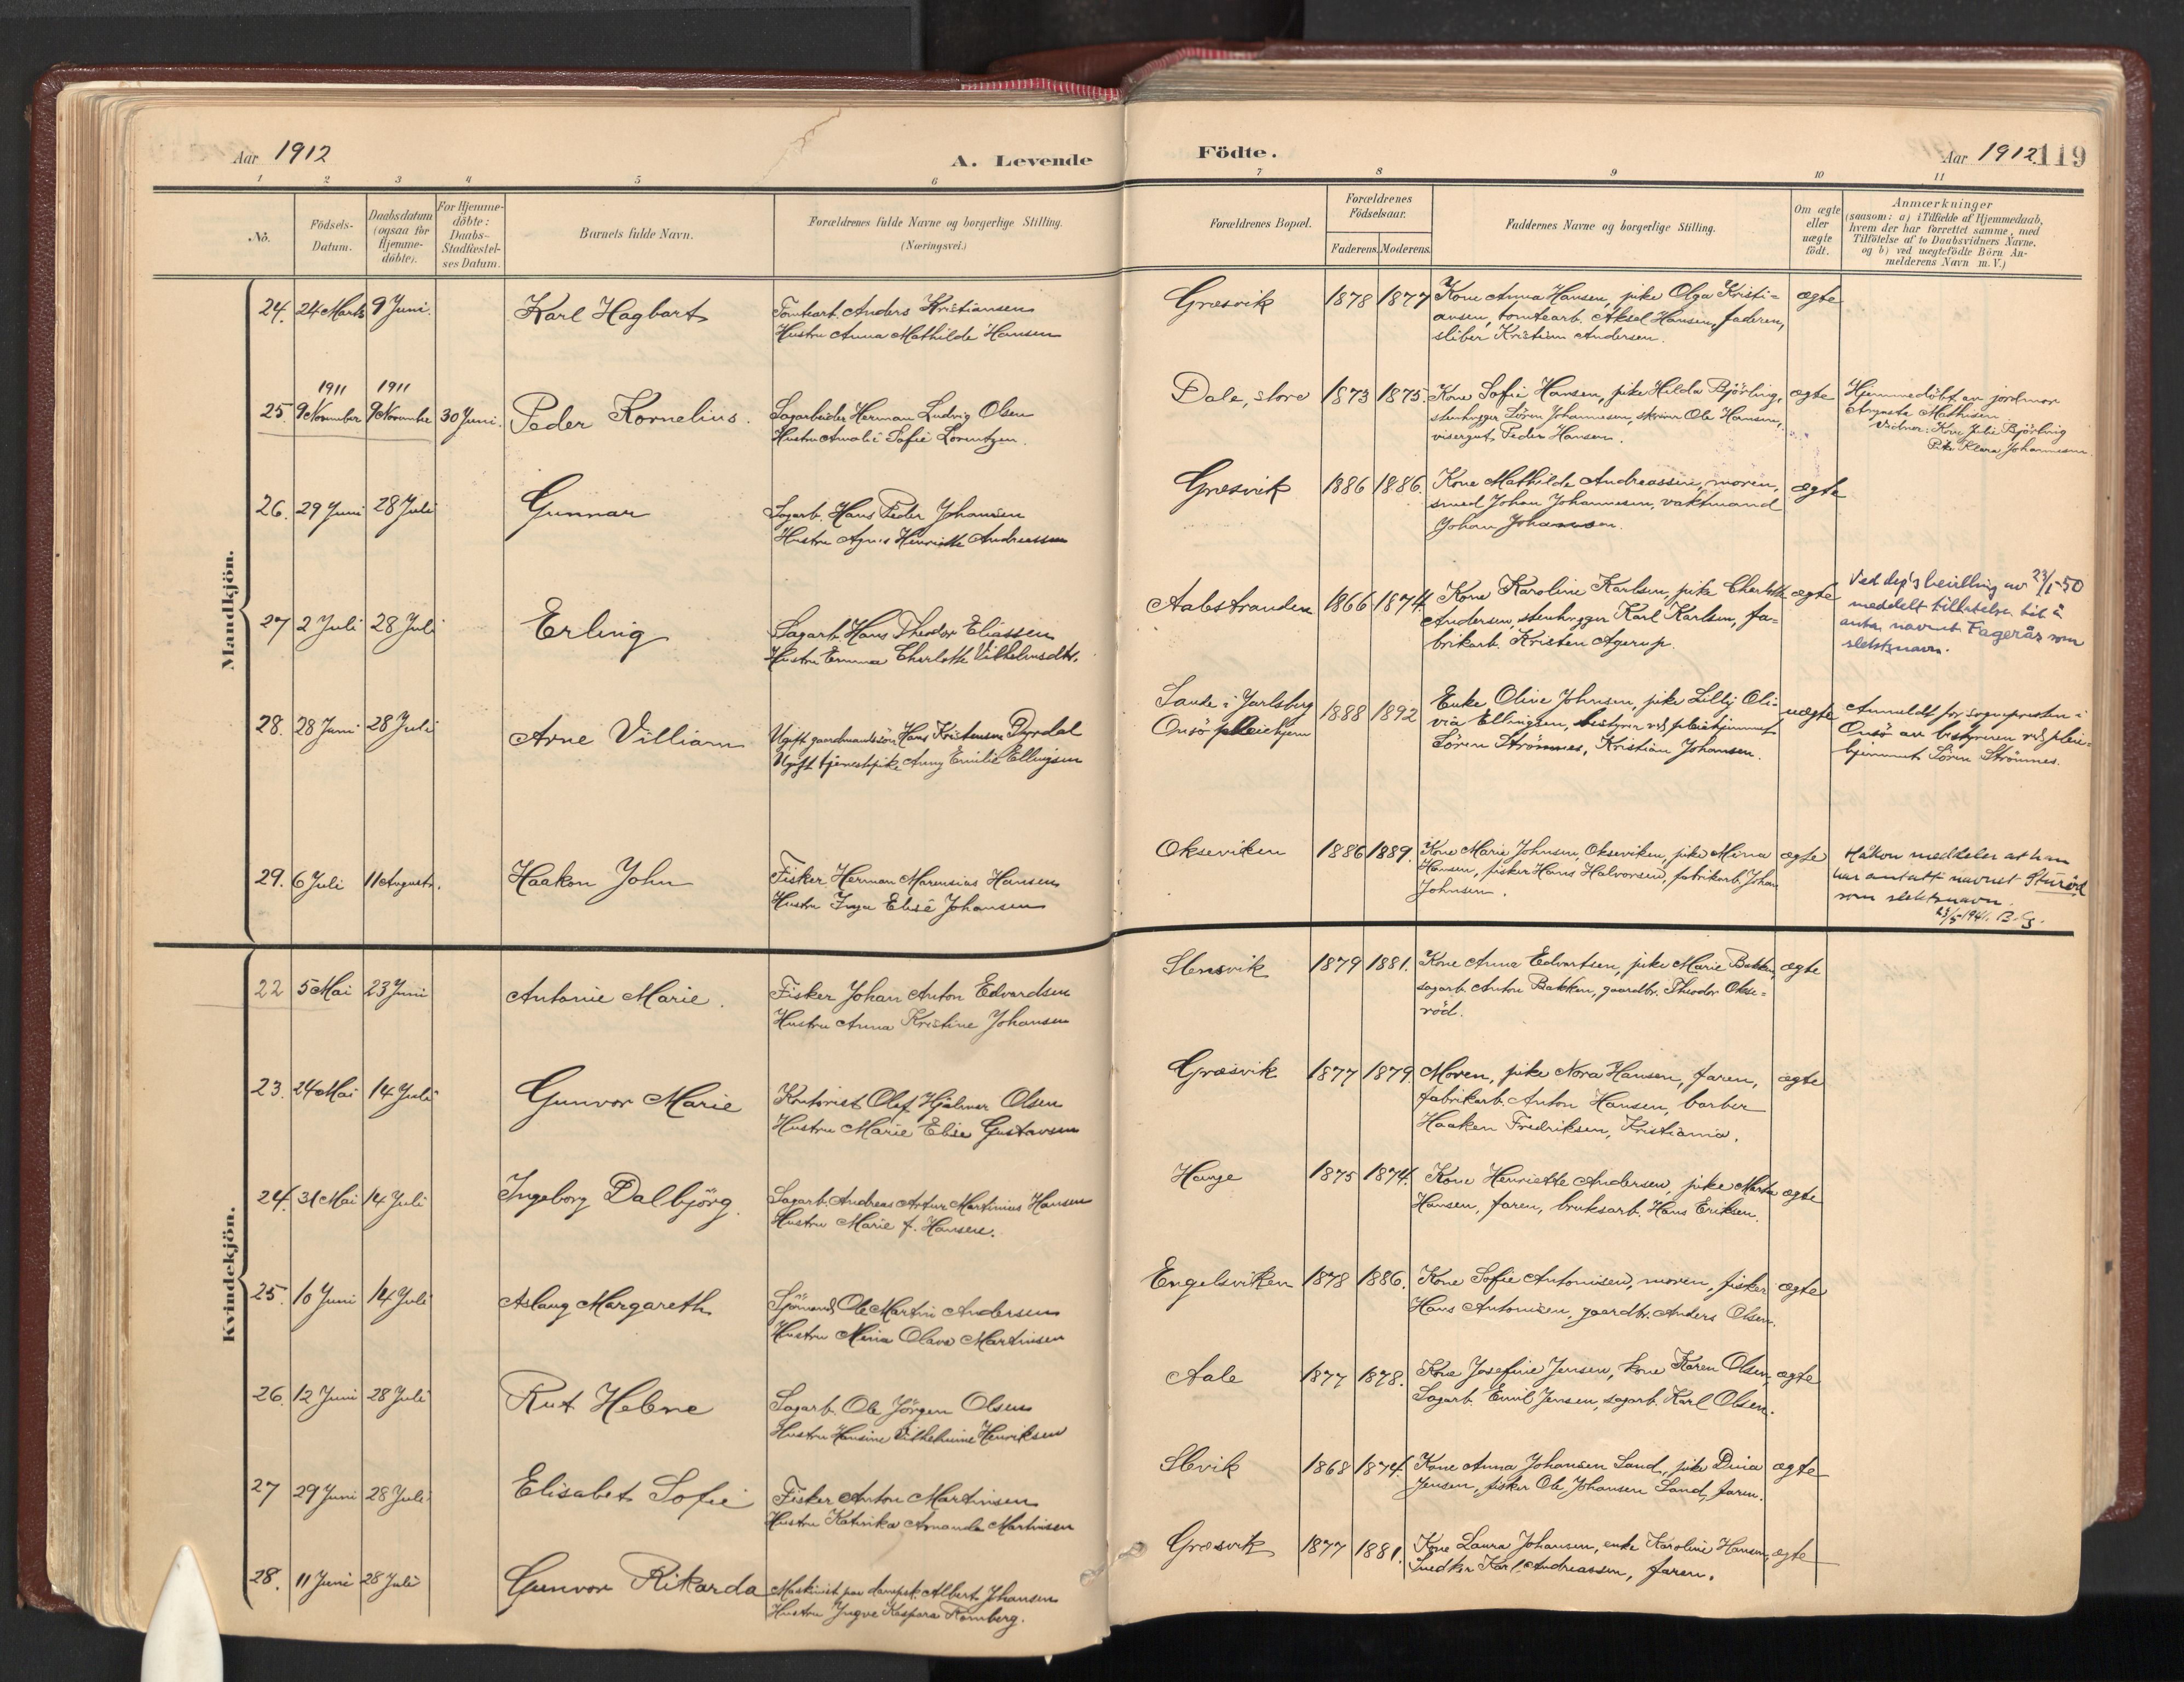 Aar 1912
A. Levende
Födte.
Aar 1912. 119
1 2 3 4 5 6 7 8 9 10 11
No.
Födsels-Datum.
Daabsdatum (ogsaa for Hjemme-döbte).
For Hjemme-döbte: Daabs-Stadfæstel-ses Datum.
Barnets fulde Navn.
Forældrenes fulde Navne og borgerlige Stilling.
(Næringsvei.)
Forældrenes Bopæl.
Forældrenes Födselsaar.
Faderens. Moderens.
Faddernes Navne og borgerlige Stilling.
Om ægte eller uægte födt.
Anmærkninger
(saasom: a) i Tilfælde af Hjemmedaab,
hvem der har forrettet samme, med
Tilföielse af to Daabsvidners Navne.
og b) ved uægtefödte Börn An-
melderens Navn m. V.)
Mandkjön.
24. 24 Marts 9 Juni. Karl Hagbart
Tomtearb. Anders Kristiansen
Hustru Anna Mathilde Hansen
Græsvik 1878 1877 ægte
Kone Anna Hansen, pike Olga Kristi=
ansen, tomtearb. Aksel Hansen, faderen,
sliber Kristian Andersen.
1911 1911
25. 9 November 9 November 30 Juni. Peder Kornelius.
Sagarbeider Herman Ludvig Olsen
Hustru Amalie Sofie Lorentzen.
Dale, store 1873 1875. ægte
Kone Sofie Hansen, pike Hilda Björling,
stenhugger Sören Johannesen, Ole Hansen,
visergut Peder Hansen.
Hjemmedöbt av jordmor
Augusta Mathisen
Vidner: Kone Julie Björling
Pike Klara Johannesen.
26. 29 Juni 28 Juli Gunnar
Sagarb. Hans Peder Johansen
Hustru Agnes Henriette Andreassen
Græsvik 1886 1886. ægte
Kone Mathilde Andreassen, moren,
smed Johan Johannesen, vaktmand
Johan Johansen.
27 2 Juli 28 Juli Erling
Sagarb. Hans Theodor Eliassen
Hustru Emma Charlotte Vilhelmsdtr.
Aalestranden 1866 1874. ægte
Kone Karoline Karlsen, pike Charlotte
Andersen, stenhugger Karl Karlsen, fa-
brikarb. Kristen Agerup.
Ved dep's bevilling av 23/1-50
meddelt tillatelse til å
anta navnet Fagerås som
slektsnavn.
28. 28 Juni 28 Juli Arne Villiam
Ugift gaardmandssön Hans Kristensen Dyrdal
Ugift tjenestepike Anny Emilie Ellingsen
Sande i Jarlsberg
Onsö pleiehjem
1888 1892 uægte
Enke Oline Johnsen, pike Lilly Oli-
via Ellingsen, bestyrer ved pleiehjemmet
Sören Strömnes, Kristian Johansen.
Anmeldt for sognepresten i
Onsö av bestyreren ved pleie-
hjemmet Sören Strömnes.
29. 6 Juli 11 August. Haakon John
Fisker Herman Marensius Hansen
Hustru Inga Elise Johansen
Okseviken 1886 1889. ægte
Kone Marie Johnsen, Okseviken, pike Mina
Hansen, fisker Hans Halvorsen, fabrikarb. Johan
Johnsen.
Håkon meddeler at han
har antatt navnet Sturöd
som slektsnavn.
23/5 1941. B.G.
Kvindekjön.
22 5 Mai 23 Juni Antonie Marie.
Fisker Johan Anton Edvardsen
Hustru Anna Kristine Johansen
Slensvik 1879 1881. ægte
Kone Anna Edvartsen, pike Marie Bakken,
sagarb. Anton Bakken, gaardbr. Theodor Okse=
röd.
23. 24 Mai 14 Juli Gunvor Marie
Kontorist Olef Hjalmar Olsen
Hustru Marie Elise Gustavsen
Græsvik 1877 1879. ægte
Moren, pike Nora Hansen, faren,
fabrikarb. Anton Hansen, barber
Haaken Fredriksen, Kristiania.
24. 31 Mai 14 Juli Ingeborg Dalbjörg.
Sagarb. Andreas Artur Martinius Hansen
Hustru Marie f. Hansen.
Hauge 1875 1874. ægte
Kone Henriette Andersen, pike Marta
Hansen, faren, bruksarb. Hans Eriksen.
25. 10 Juni 14 Juli Aslaug Margareth
Sjömand Ole Martin Andersen
Hustru Mina Olava Martinsen
Engelsviken 1878 1886. ægte
Kone Sofie Antonisen, moren, fisker
Hans Antonisen, gaardbr. Anders Olsen.
26. 12 Juni 28 Juli Rut Helene
Sagarb. Ole Jörgen Olsen
Hustru Hansine Vilhelmine Henriksen
Aale 1877 1878. ægte
Kone Josefine Jensen, kone Karen Olsen,
Sagarb. Emil Jensen, sagarb. Karl Olsen.
27 29 Juni 28 Juli Elisabet Sofie
Fisker Anton Martinsen
Hustru Katinka Amanda Martinsen
Slevik 1868 1874. ægte
Kone Anna Johansen Sand, pike Dina
Jensen, fisker Ole Johansen Sand, faren.
28. 11 Juni 28 Juli Gunvor Rikarda
Maskinist paa dampsk. Albert Johansen
Hustru Yngva Kaspara Romberg.
Græsvik 1877 1881. ægte
Kone Laura Johansen, enke Karoline Hansen,
Snedker Karl Andreassen, faren.